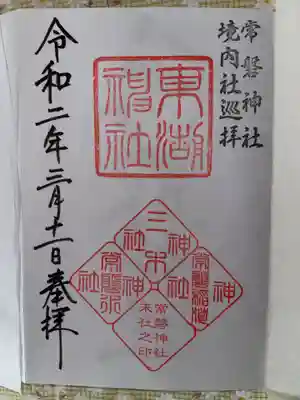 常磐神社
境内社巡拝
東湖
神社
三木
神社
常磐稲荷
神社
常磐水
神社
常磐神社
末社之印
令和二年三月十一日奉拝